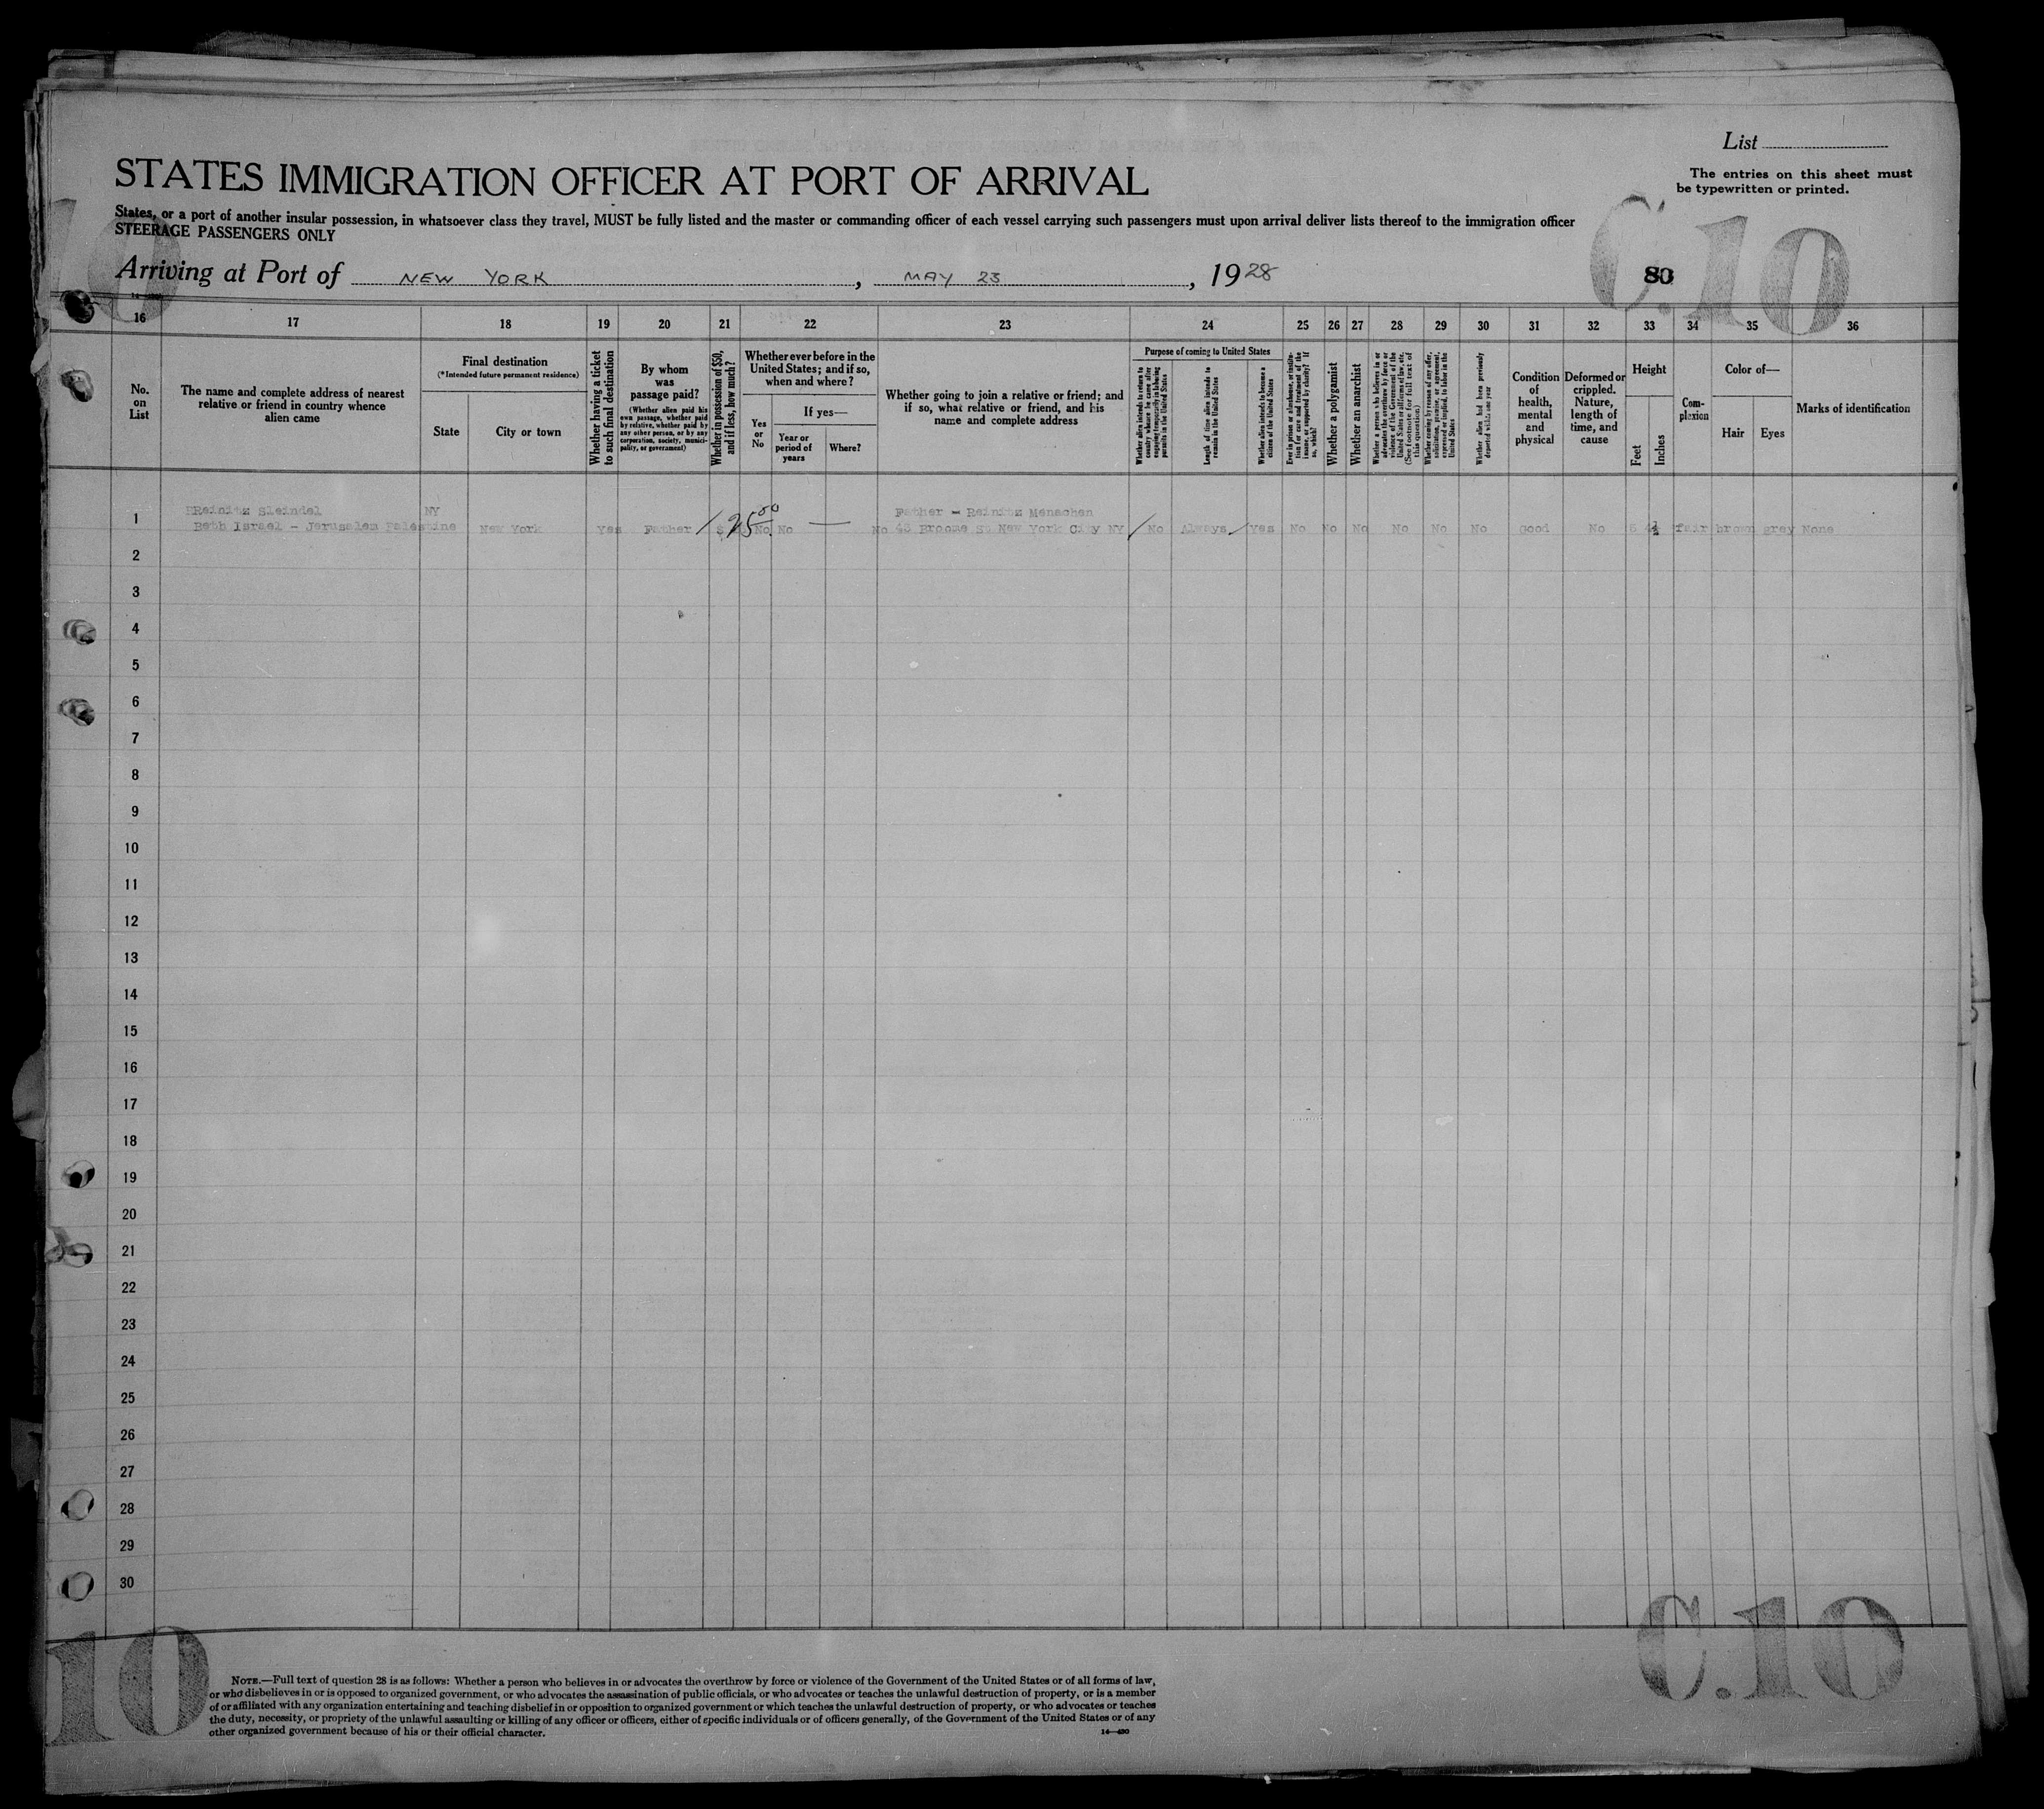 List
The entries on this sheet must
be typewritten or printed.
STATES IMMIGRATION OFFICER AT PORT OF ARRIVAL
States, or a port of another insular possession, in whatsoever class they travel, MUST be fully listed and the master or commanding officer of each vessel carrying such passengers must upon arrival deliver lists thereof to the immigration officer
STEERAGE PASSENGERS ONLY
10
C.10
Arriving at Port of NEW YORK, MAY 23, 1928
80
16 17 18 19 20 21 22 23 24 25 26 27 28 29 30 31 32 33 34 35 36
No.
on
List
The name and complete address of nearest
relative or friend in country whence
alien came
Final destination
(*Intended future permanent residence)
State
City or town
Whether having a ticket
to such final destination
By whom
was
passage paid?
(Whether alien paid his
own passage, whether paid
by relative, whether paid by
any other person, or by any
corporation, society, munici-
pality, or government)
Whether in possession of $50,
and if less, how much?
Whether ever before in the
United States; and if so,
when and where?
Yes
or
No
If yes—
Year or
period of
years
Where?
Whether going to join a relative or friend; and
if so, what relative or friend, and his
name and complete address
Purpose of coming to United States
Whether alien intends to return to
country whence he came after
engaging temporarily in laboring
pursuits in the United States
Length of time alien intends to
remain in the United States
Whether alien intends to become a
citizen of the United States
Ever in prison or almshouse, or institu-
tion for care and treatment of the
insane, or supported by charity? If
so, which?
Whether a polygamist
Whether an anarchist
Whether a person who believes in or
advocates the overthrow by force or
violence of the Government of the
United States or all forms of law, etc.
(See footnote for full text of
this question)
Whether coming by reason of any offer,
solicitation, promise, or agreement,
expressed or implied, to labor in the
United States
Whether alien had been previously
deported within one year
Condition
of
health,
mental
and
physical
Deformed or
crippled.
Nature,
length of
time, and
cause
Height
Feet
Inches
Com-
plexion
Color of—
Hair
Eyes
Marks of identification
Reinitz Sleindel NY Father - Reinitz Menachen
1 Beth Israel - Jerusalem Palestine New York Yes Father $ 25 00 No No — No 43 Broome St New York City NY No Always Yes No No No No No No Good No 5 4½ fair brown grey None
2
3
4
5
6
7
8
9
10
11
12
13
14
15
16
17
18
19
20
21
22
23
24
25
26
27
28
29
30
10
C.10
NOTE.—Full text of question 28 is as follows: Whether a person who believes in or advocates the overthrow by force or violence of the Government of the United States or of all forms of law,
or who disbelieves in or is opposed to organized government, or who advocates the assassination of public officials, or who advocates or teaches the unlawful destruction of property, or is a member
of or affiliated with any organization entertaining and teaching disbelief in or opposition to organized government or which teaches the unlawful destruction of property, or who advocates or teaches
the duty, necessity, or propriety of the unlawful assaulting or killing of any officer or officers, either of specific individuals or of officers generally, of the Government of the United States or of any
other organized government because of his or their official character.
14—430